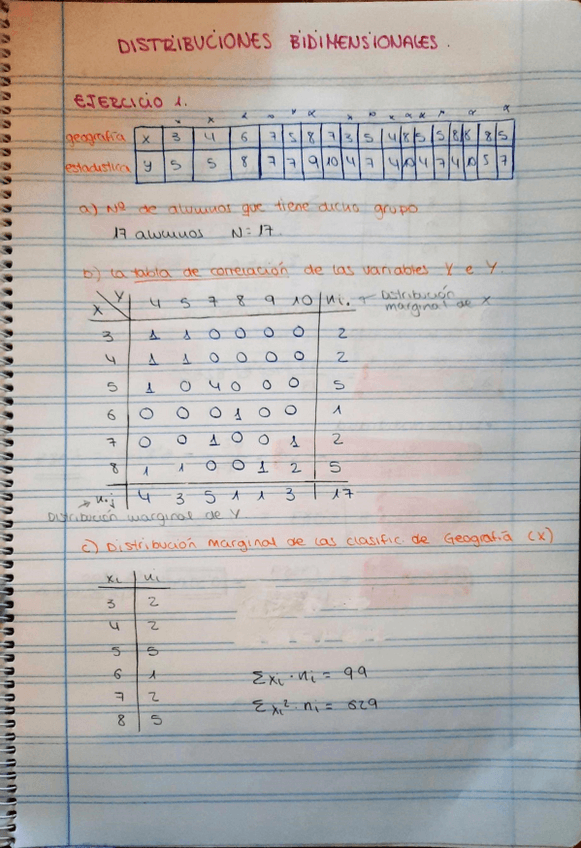 DISTRIBUCIONES BIDIMENSIONALES.
EJERCICIO 1.
geografía X 3 4 6 7 5 8 7 3 5 4 8 5 5 8 8 8 5
estadística Y 5 5 8 7 7 9 10 4 7 4 10 4 7 4 10 5 7
a) Nº de alumnos que tiene dicho grupo
17 alumnos N=17.
b) La tabla de correlación de las variables X e Y
X Y 4 5 7 8 9 10 ni. ← Distribución marginal de X
3 1 1 0 0 0 0 2
4 1 1 0 0 0 0 2
5 1 0 4 0 0 0 5
6 0 0 0 1 0 0 1
7 0 0 1 0 0 1 2
8 1 1 0 0 1 2 5
→ n.j 4 3 5 1 1 3 17
Distribución marginal de Y
c) Distribución marginal de las clasific. de Geografía (X)
xi ni
3 2
4 2
5 5
6 1 Σxi·ni = 99
7 2 Σxi²·ni = 629
8 5